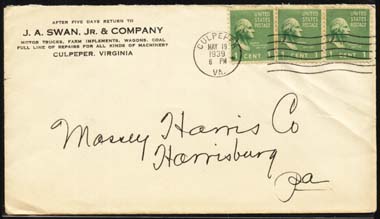 AFTER FIVE DAYS RETURN TO
J. A. SWAN, JR. & COMPANY
MOTOR TRUCKS, FARM IMPLEMENTS, WAGONS, COAL
FULL LINE OF REPAIRS FOR ALL KINDS OF MACHINERY
CULPEPER, VIRGINIA
CULPEPER
MAY 19
1939
6 PM
VA.
UNITED STATES POSTAGE
1 CENT 1
UNITED STATES POSTAGE
1 CENT 1
UNITED STATES POSTAGE
1 CENT 1
Massey Harris Co
Harrisburg
Pa